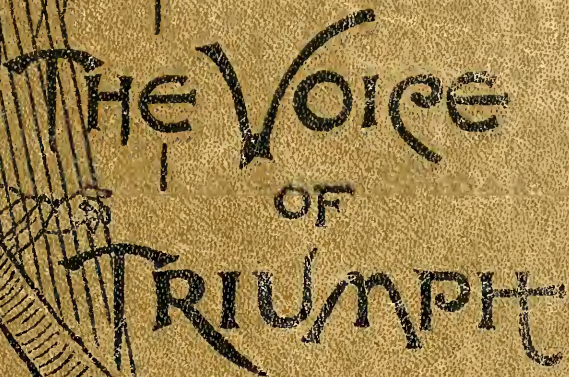 THE VOICE
OF
TRIUMPH